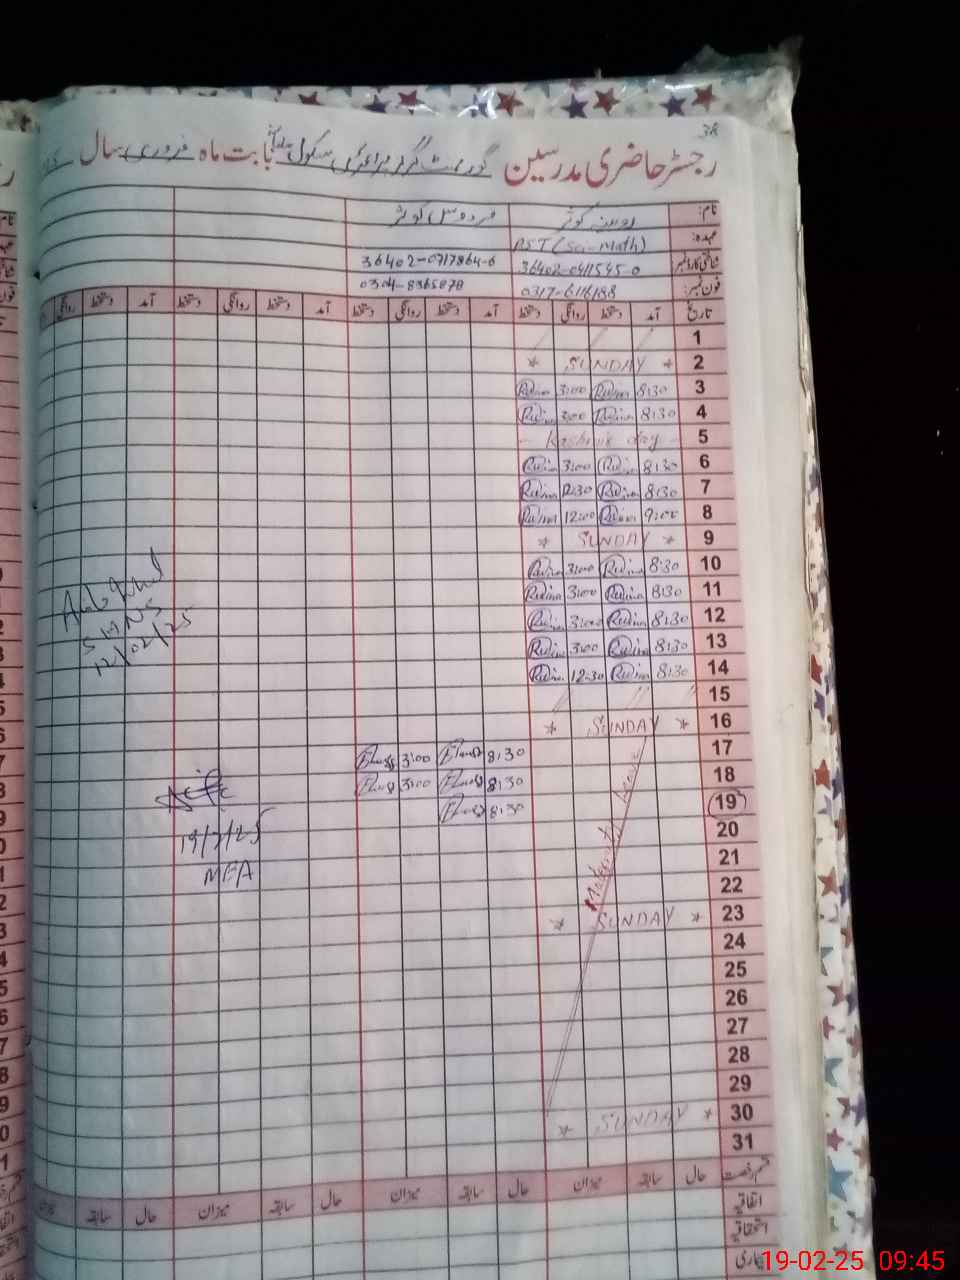 38
رجسٹر حاضری مدرسین گورنمنٹ گرلز پرائمری سکول بابت ماہ فروری سال
نام: روبینہ کوثر فردوس کوثر
عہدہ: PST (Sci-Math)
شناختی کارڈ نمبر 36402-0411545-0 36402-0717864-6
فون نمبر: 0317-6118188 0304-8365878
تاریخ آمد دستخط روانگی دستخط آمد دستخط روانگی دستخط آمد دستخط روانگی دستخط آمد دستخط روانگی
1
2 * SUNDAY *
3 8:30 Rubina 3:00 Rubina
4 8:30 Rubina 3:00 Rubina
5 - Kashmir day -
6 8:30 Rubina 3:00 Rubina
7 8:30 Rubina 12:30 Rubina
8 9:00 Rubina 12:00 Rubina
9 * SUNDAY *
10 8:30 Rubina 3:00 Rubina
11 8:30 Rubina 3:00 Rubina
12 8:30 Rubina 3:00 Rubina
13 8:30 Rubina 3:00 Rubina
14 8:30 Rubina 12:30 Rubina
12/02/25
15
16 * SUNDAY *
17 8:30 3:00
18 8:30 3:00
19 8:30
Maternity leave
19/2/25
MEA
20
21
22
23 * SUNDAY *
24
25
26
27
28
29
30 * SUNDAY *
31
قسم رخصت حال سابقہ میزان حال سابقہ میزان حال سابقہ میزان حال سابقہ
اتفاقیہ
استحقاقیہ
بیماری
19-02-25 09:45